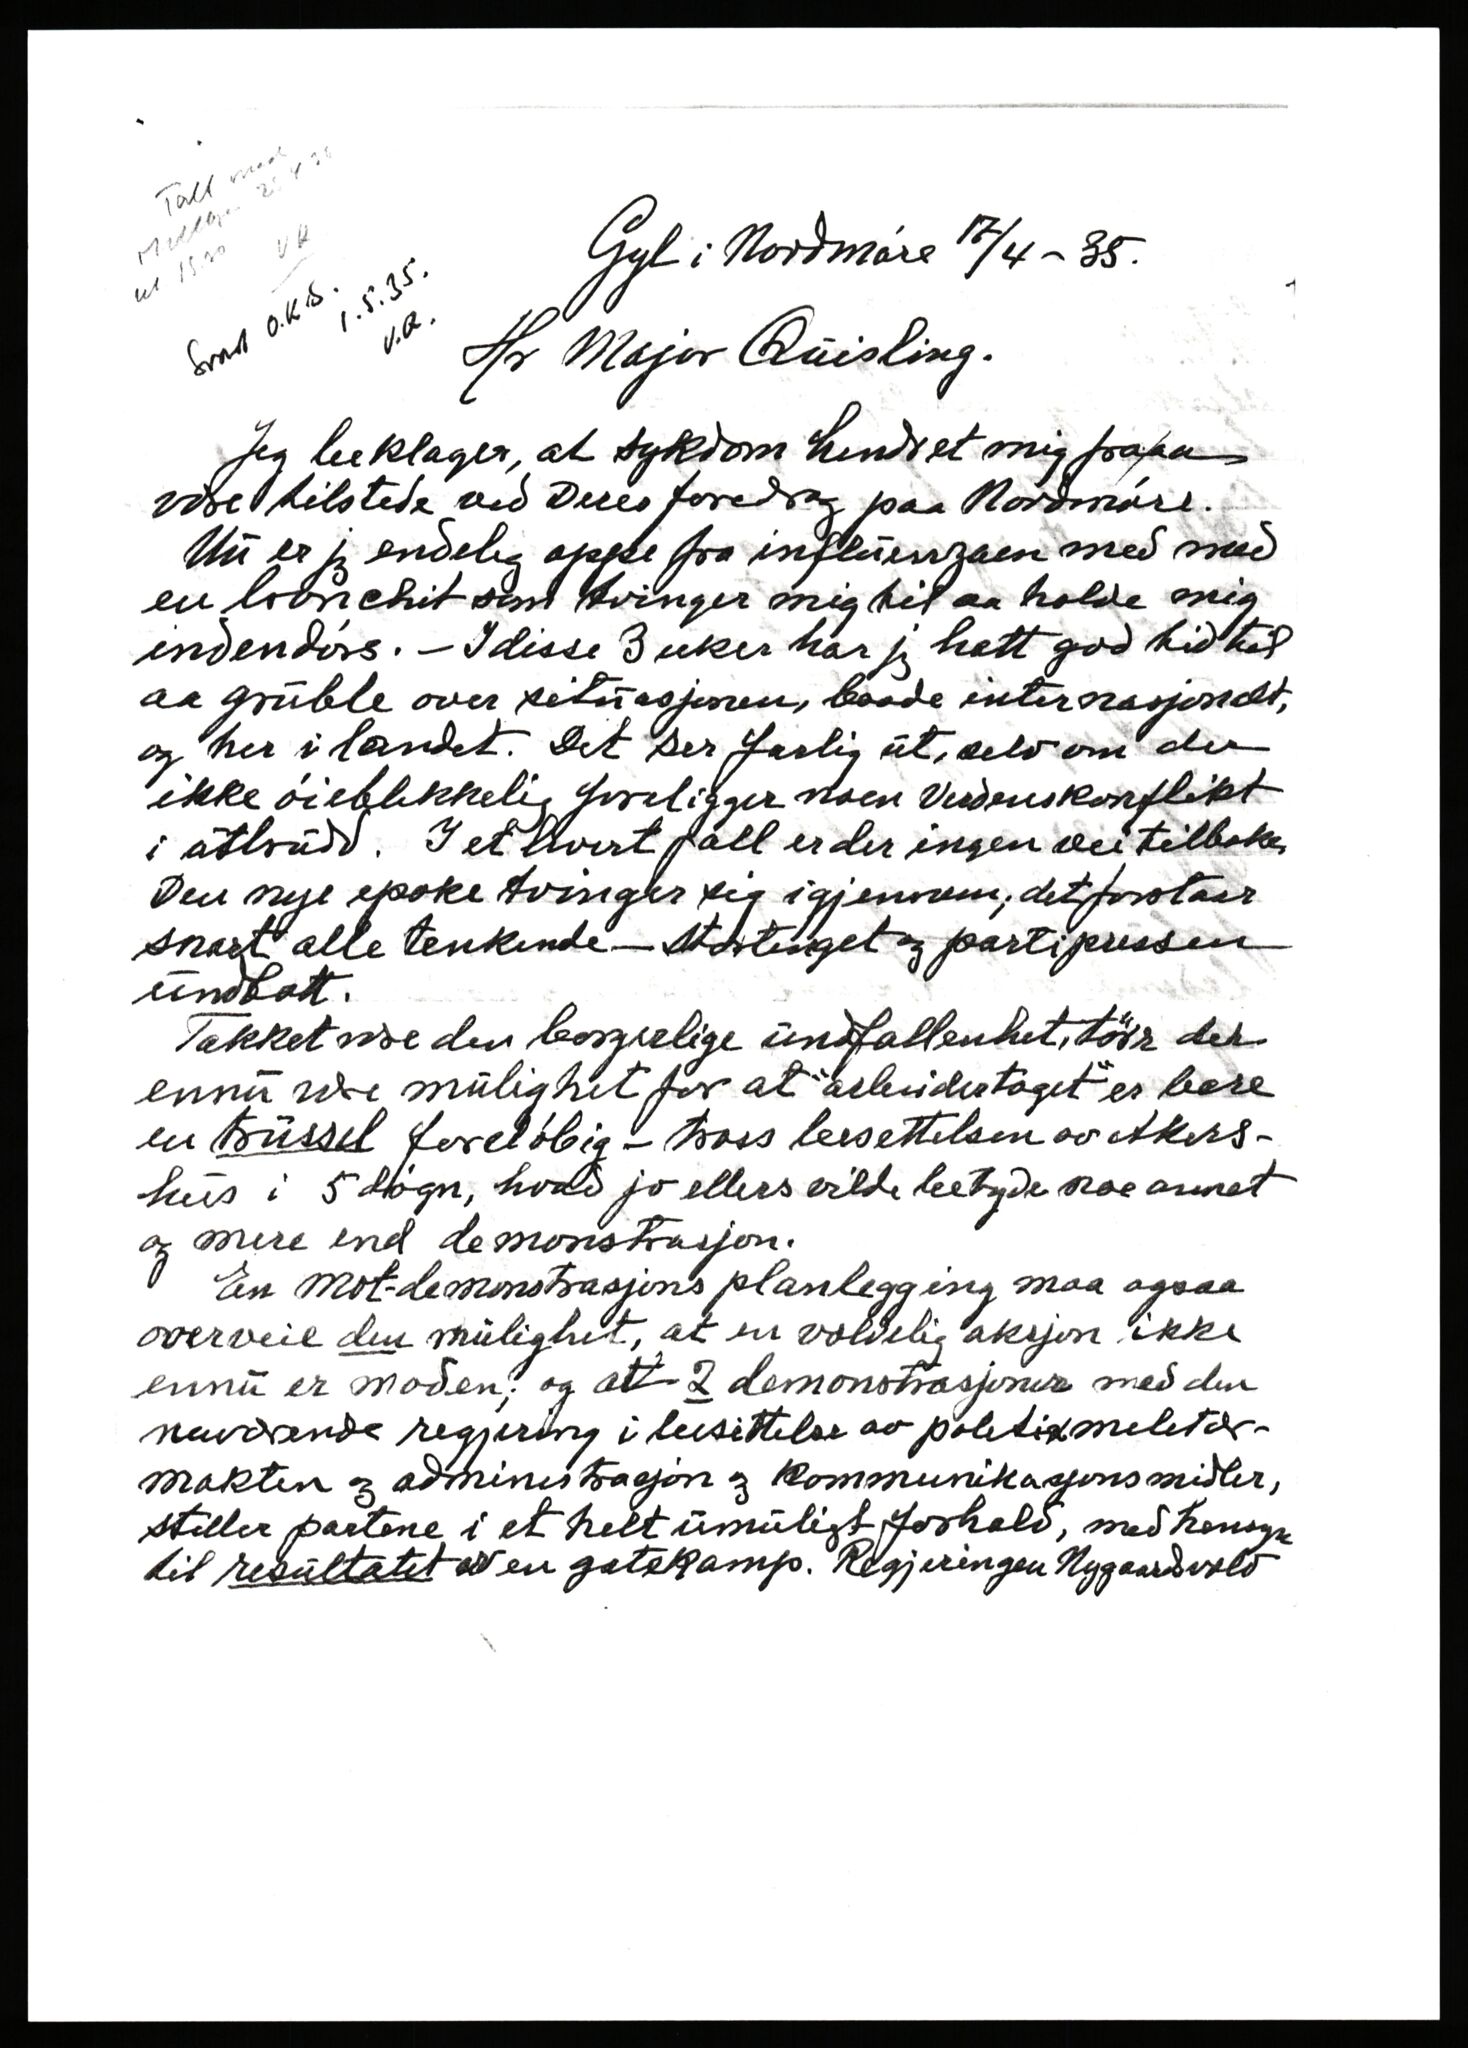 Tall med
kl 15.30 VR
Svart O.K.S.
1.5.35.
V.R.
Gyl i Nordmöre 17/4 - 35.
Hr Major Quisling.
Jeg beklager, at sykdom hindret mig fra aa
være tilstede ved Deres foredrag paa Nordmöre.
Nu er jg endelig oppe fra influenzaen med med
en bronchit som tvinger mig til aa holde mig
indendörs. - I disse 3 uker har jg hatt god tid til
aa gruble over situasjonen, baade internasjonalt,
og her i landet. Det ser farlig ut, selv om der
ikke öieblikkelig foreligger noen verdenskonflikt
i utbrudd. I et hvert fall er der ingen vei tilbake.
Den nye epoke tvinger sig igjennem; det forstaar
snart alle tenkende - Stortinget og partipressen
undtatt.
Takket være den borgerlige undfallenhet, törr der
ennu være mulighet for at "arbeidertoget" er bare
en trussel foreløbig - tross besettelsen av Akers-
hus i 5 dögn, hvad jo ellers vilde betyde noe annet
og mere end demonstrasjon.
En Mot-demonstrasjons planlegging maa ogsaa
overveie den mulighet, at en voldelig aksjon ikke
ennu er moden; og att 2 demonstrasjoner med den
nuværende regjering i besittelse av politi x militær-
makten og administrasjon og kommunikasjonsmidler,
stiller partene i et helt umuligt forhold, med hensyn
til resultatet av en gatekamp. Regjeringen Nygaardsvold